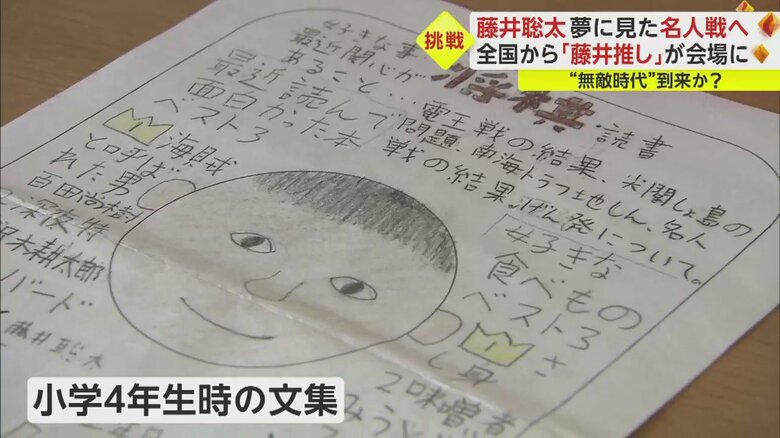 挑戦
藤井聡太 夢に見た名人戦へ
全国から「藤井推し」が会場に
“無敵時代”到来か？
・読書
好きな事
最近関心が
あること…電王戦の結果、尖閣しょ島の
問題、南海トラフ地しん、名人
戦の結果、げん発について。
最近読んで
面白かった本
ベスト3
1 海賊
と呼ば
れた男
百田尚樹
2深夜特
沢木耕太郎
バード
藤井聡太
好きな
食べもの
ベスト3
1
さ
し
2味噌煮
小学4年生時の文集